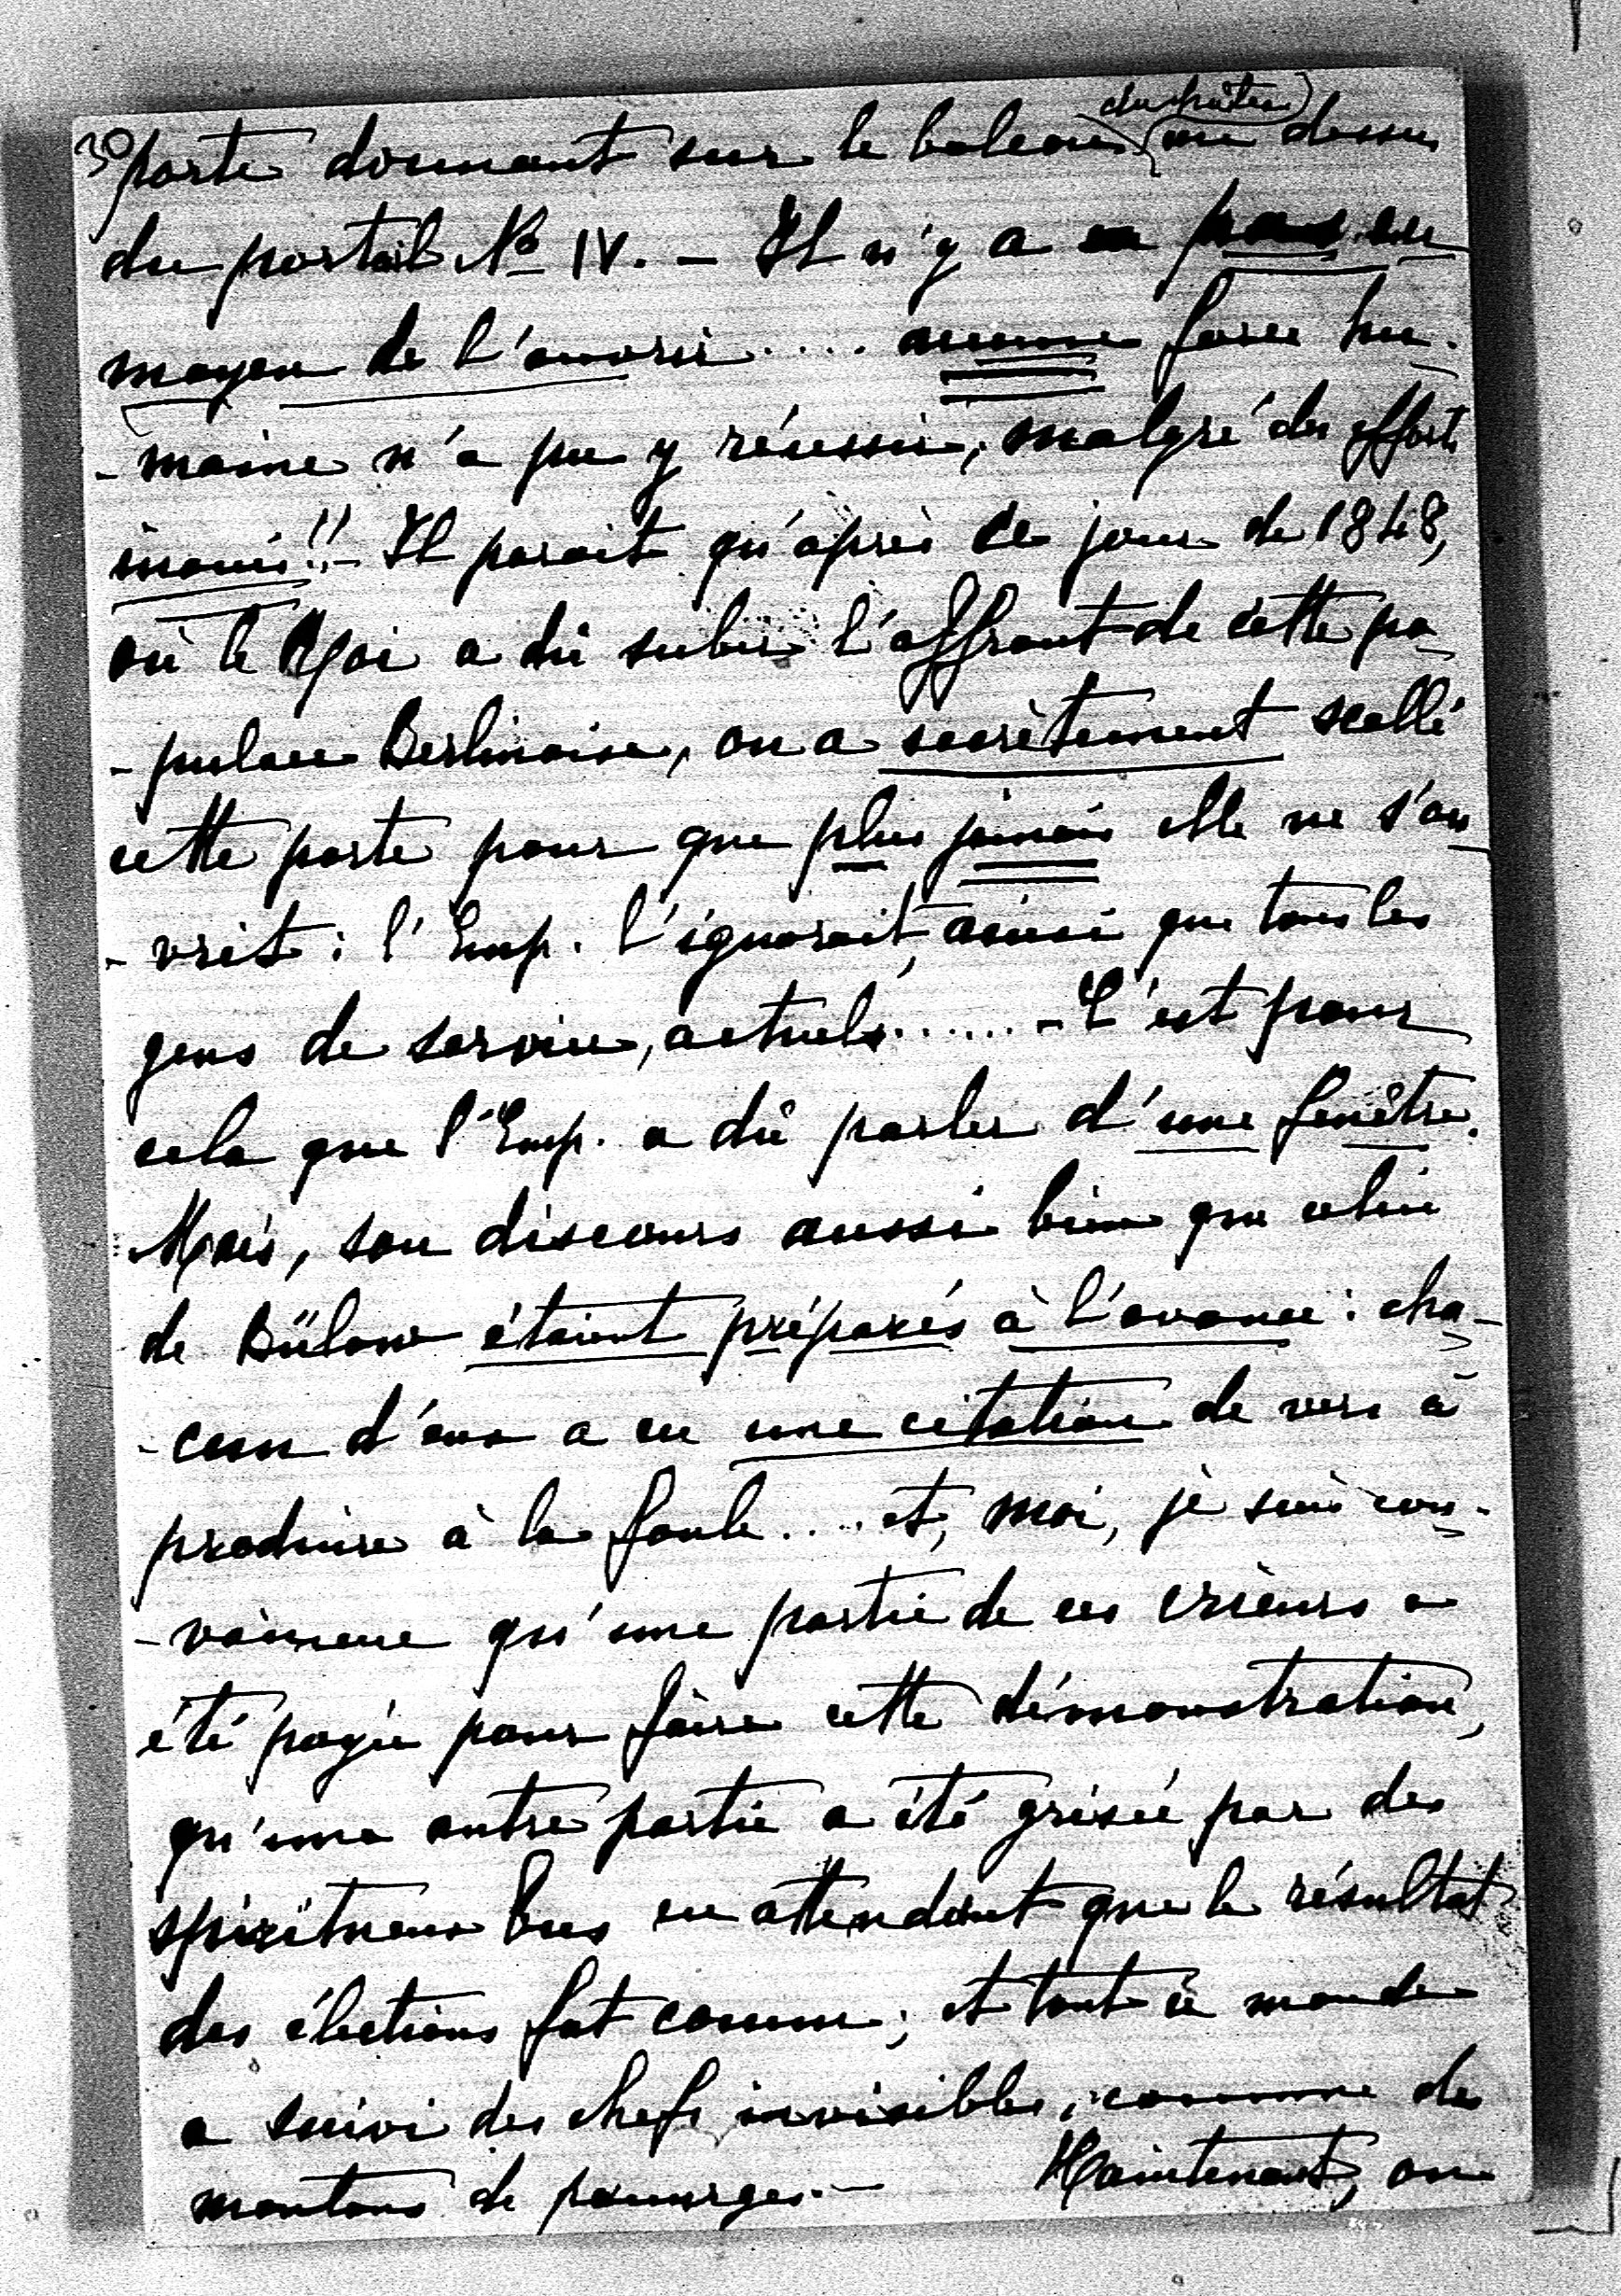 30
du château)
porte donnant sur le balcon (au dessus
du portail No IV. – Il n'y a pas eu
moyen de l'ouvrir.... aucune force hu-
-maine n'a pu y réussir, malgré des efforts
inouïs!! – Il parait qu'après ce jour de 1848,
où le Roi a dû subir l'affront de cette po-
-pulace Berlinoise, on a secrètement scellé
cette porte pour que plus jamais elle ne s'ou-
-vrit : l'Emp. l'ignorait, ainsi que tous les
gens de service, actuels...... – C'est pour
cela que l'Emp. a dû parler d'une fenêtre.
Mais, son discours aussi bien que celui
de Bülow étaient préparés à l'avance : cha-
-cun d'eux a eu une citation de vers à
produire à la foule.... et, moi, je suis con-
-vaincue qu'une partie de ces crieurs a
été payée pour faire cette démonstration,
qu'une autre partie a été grisée par des
spiritueux bus en attendant que le résultat
des élections fut connu; et tout ce monde
a suivi des chefs invisibles, comme des
moutons de panurge. – Maintenant, on